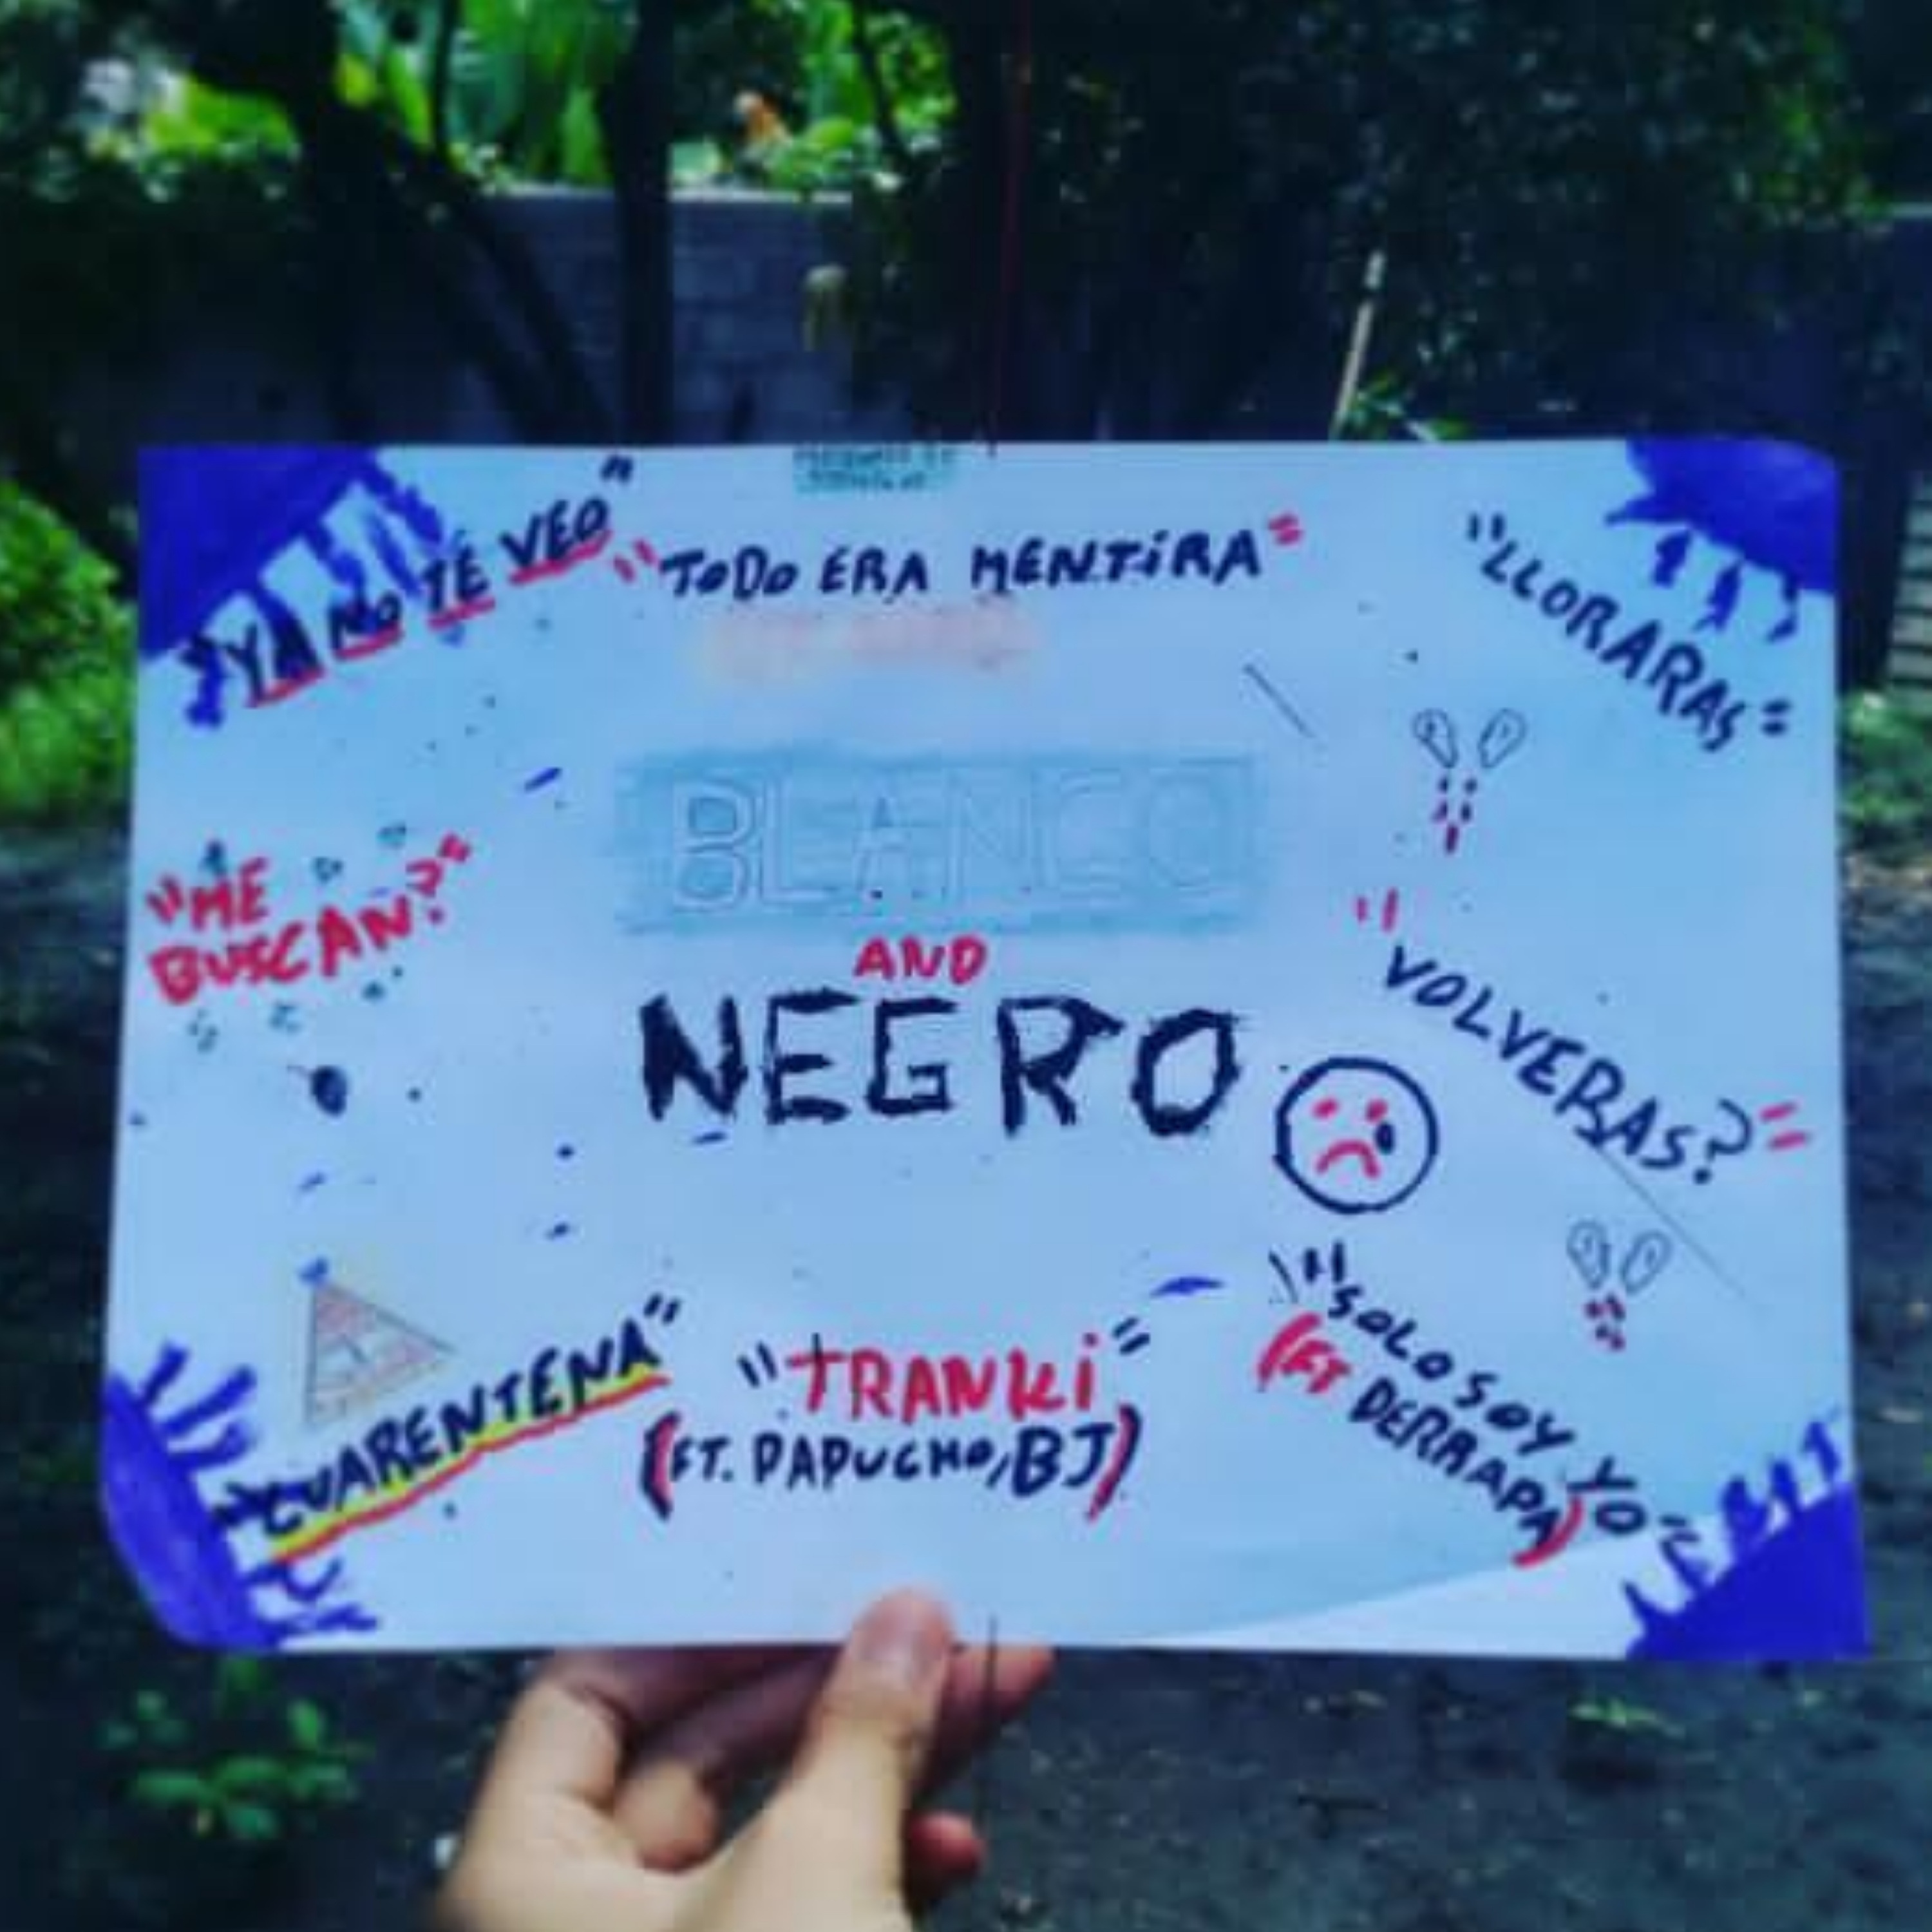 "YA NO TE VEO"
"TODO ERA MENTIRA"
"LLORARAS"
BLANCO
AND
NEGRO
"ME
BUSCAN?"
"VOLVERAS?"
"CUARENTENA"
"TRANKi"
(FT. PAPUCHO, BJ)
"SOLO SOY YO"
(FT DERRAPA)